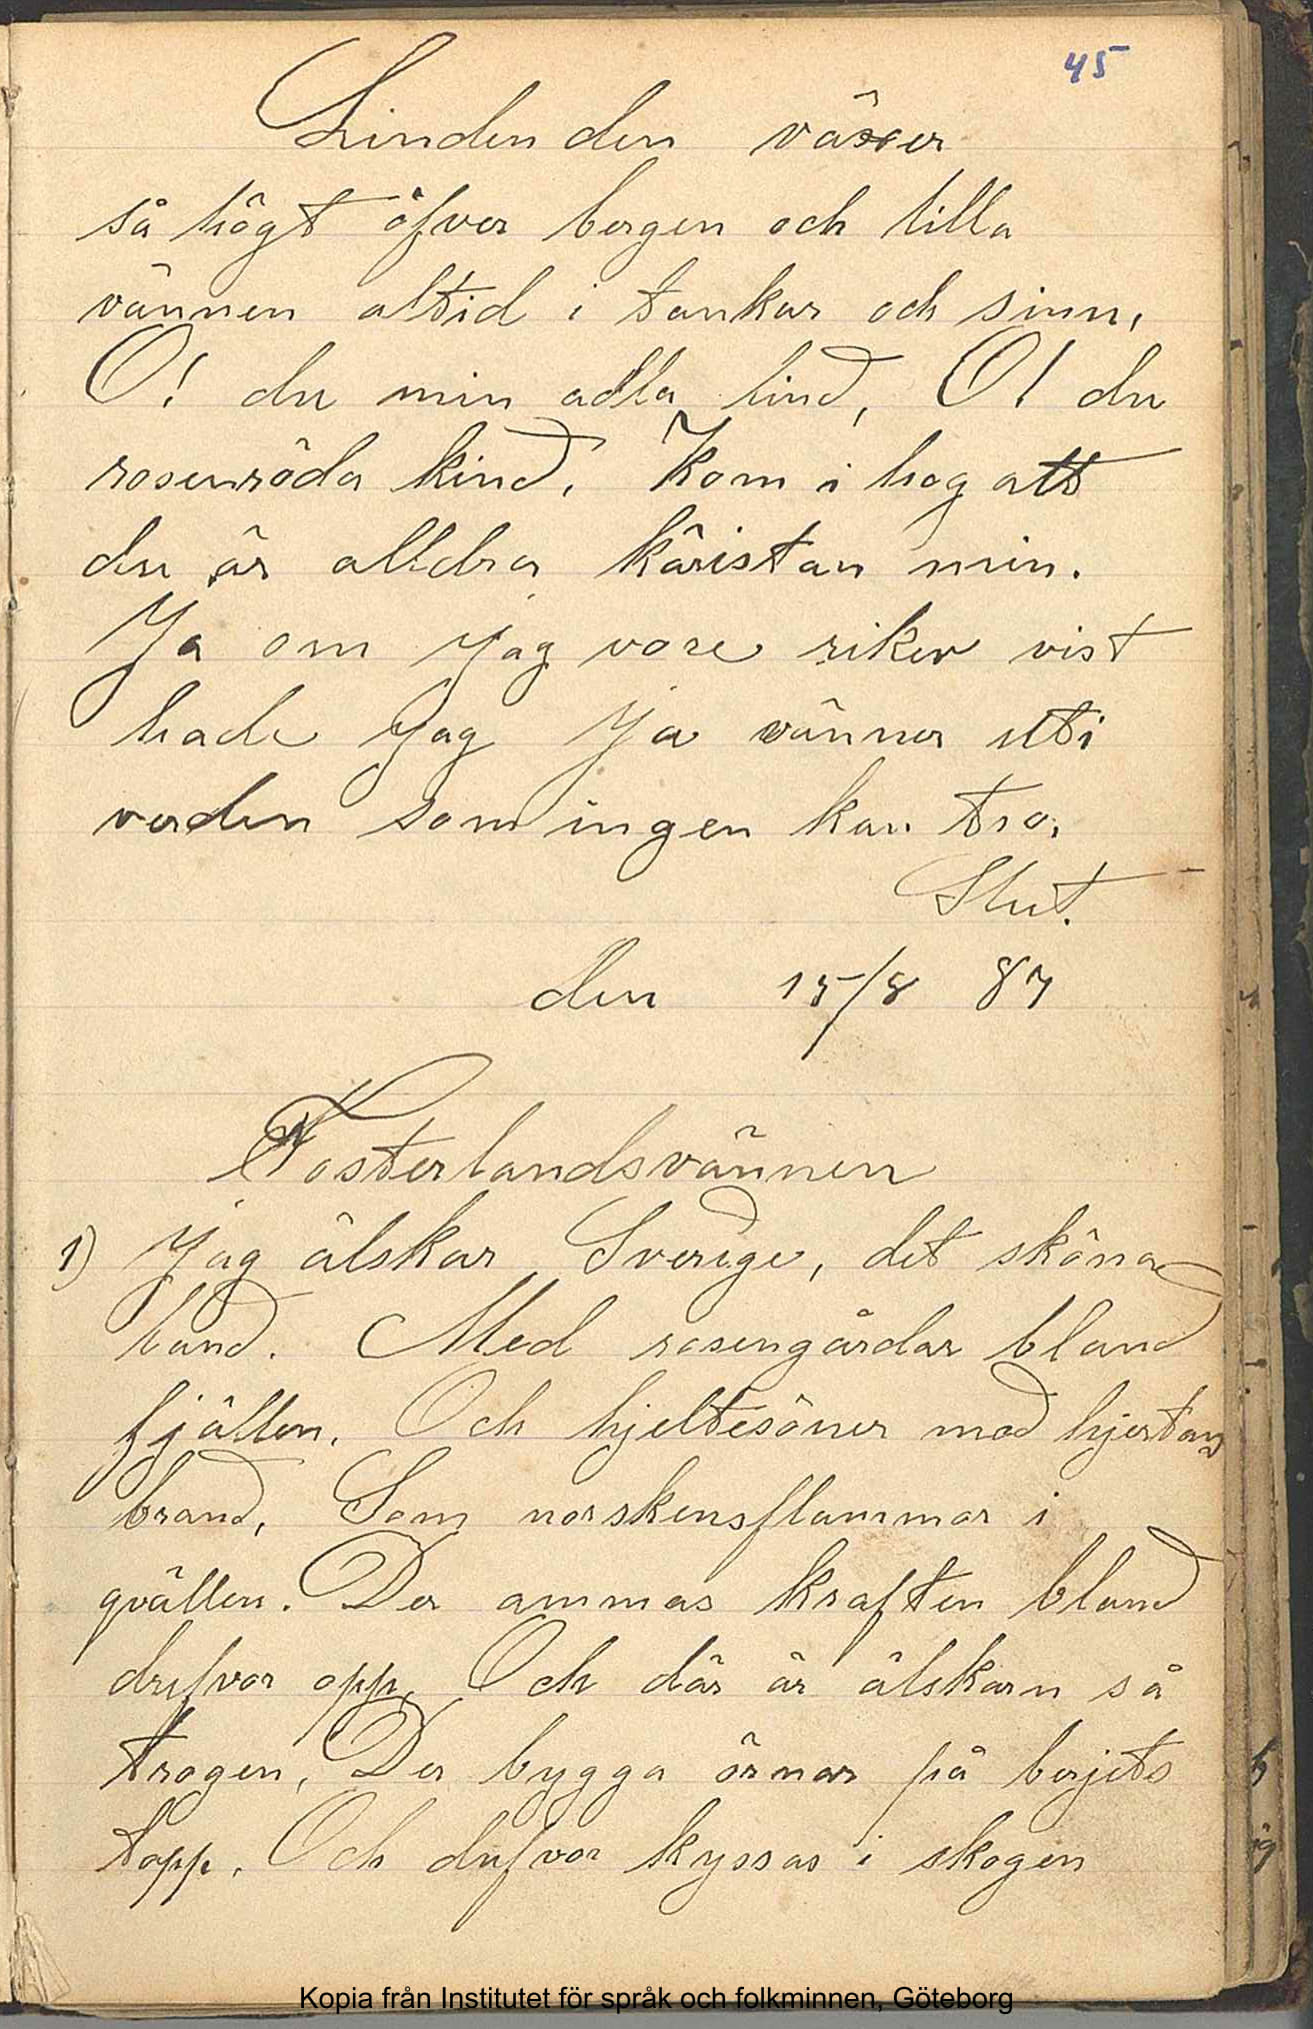 45
Linden den växer
så högt öfver bergen och lilla
vännen altid i tankar och sinn,
O! du min adla lind, O! du
rosenröda kind, Kom i hog att
du är alldra käristan min.
Ja om jag vore riker vist
hade jag ja vänner uti
verden som ingen kan tro,
Slut.
den 15/8 87
Fosterlandsvännen
1) Jag älskar Sverige, det sköna
land. Med rosengårdar bland
fjällen, Och hjeltesöner med hjertans
brand, Som norskensflammor i
qvällen. Der ammas kraften bland
drifvor opp, Och där är älskarn så
trogen, Der bygga örnar på berjets
topp, Och dufvor kyssas i skogen
Kopia från Institutet för språk och folkminnen, Göteborg